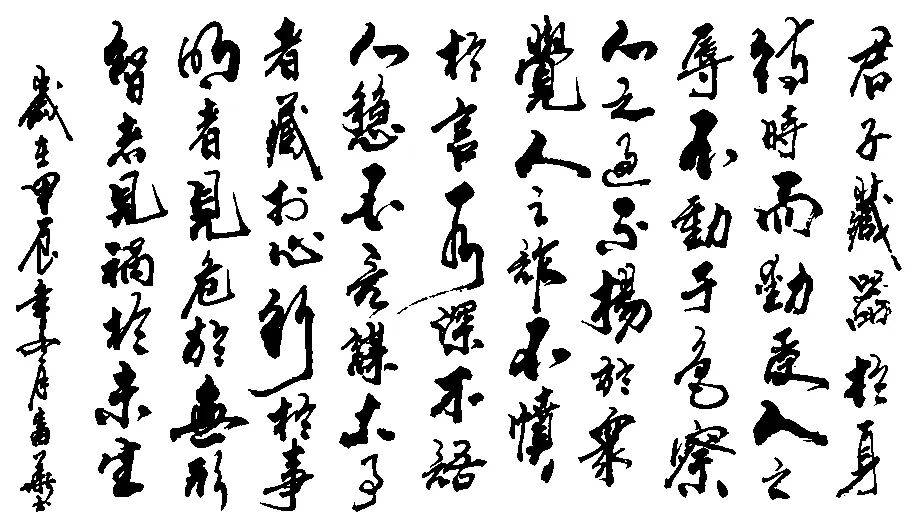 君子藏器於身
待時而動受人之
辱不動于色察
人之過不揚於眾
覺人之詐不憤
於言水深不語
人穩不言謀大事
者藏於心行於事
明者見危於無形
智者見禍於未
歲在甲辰年月富華書